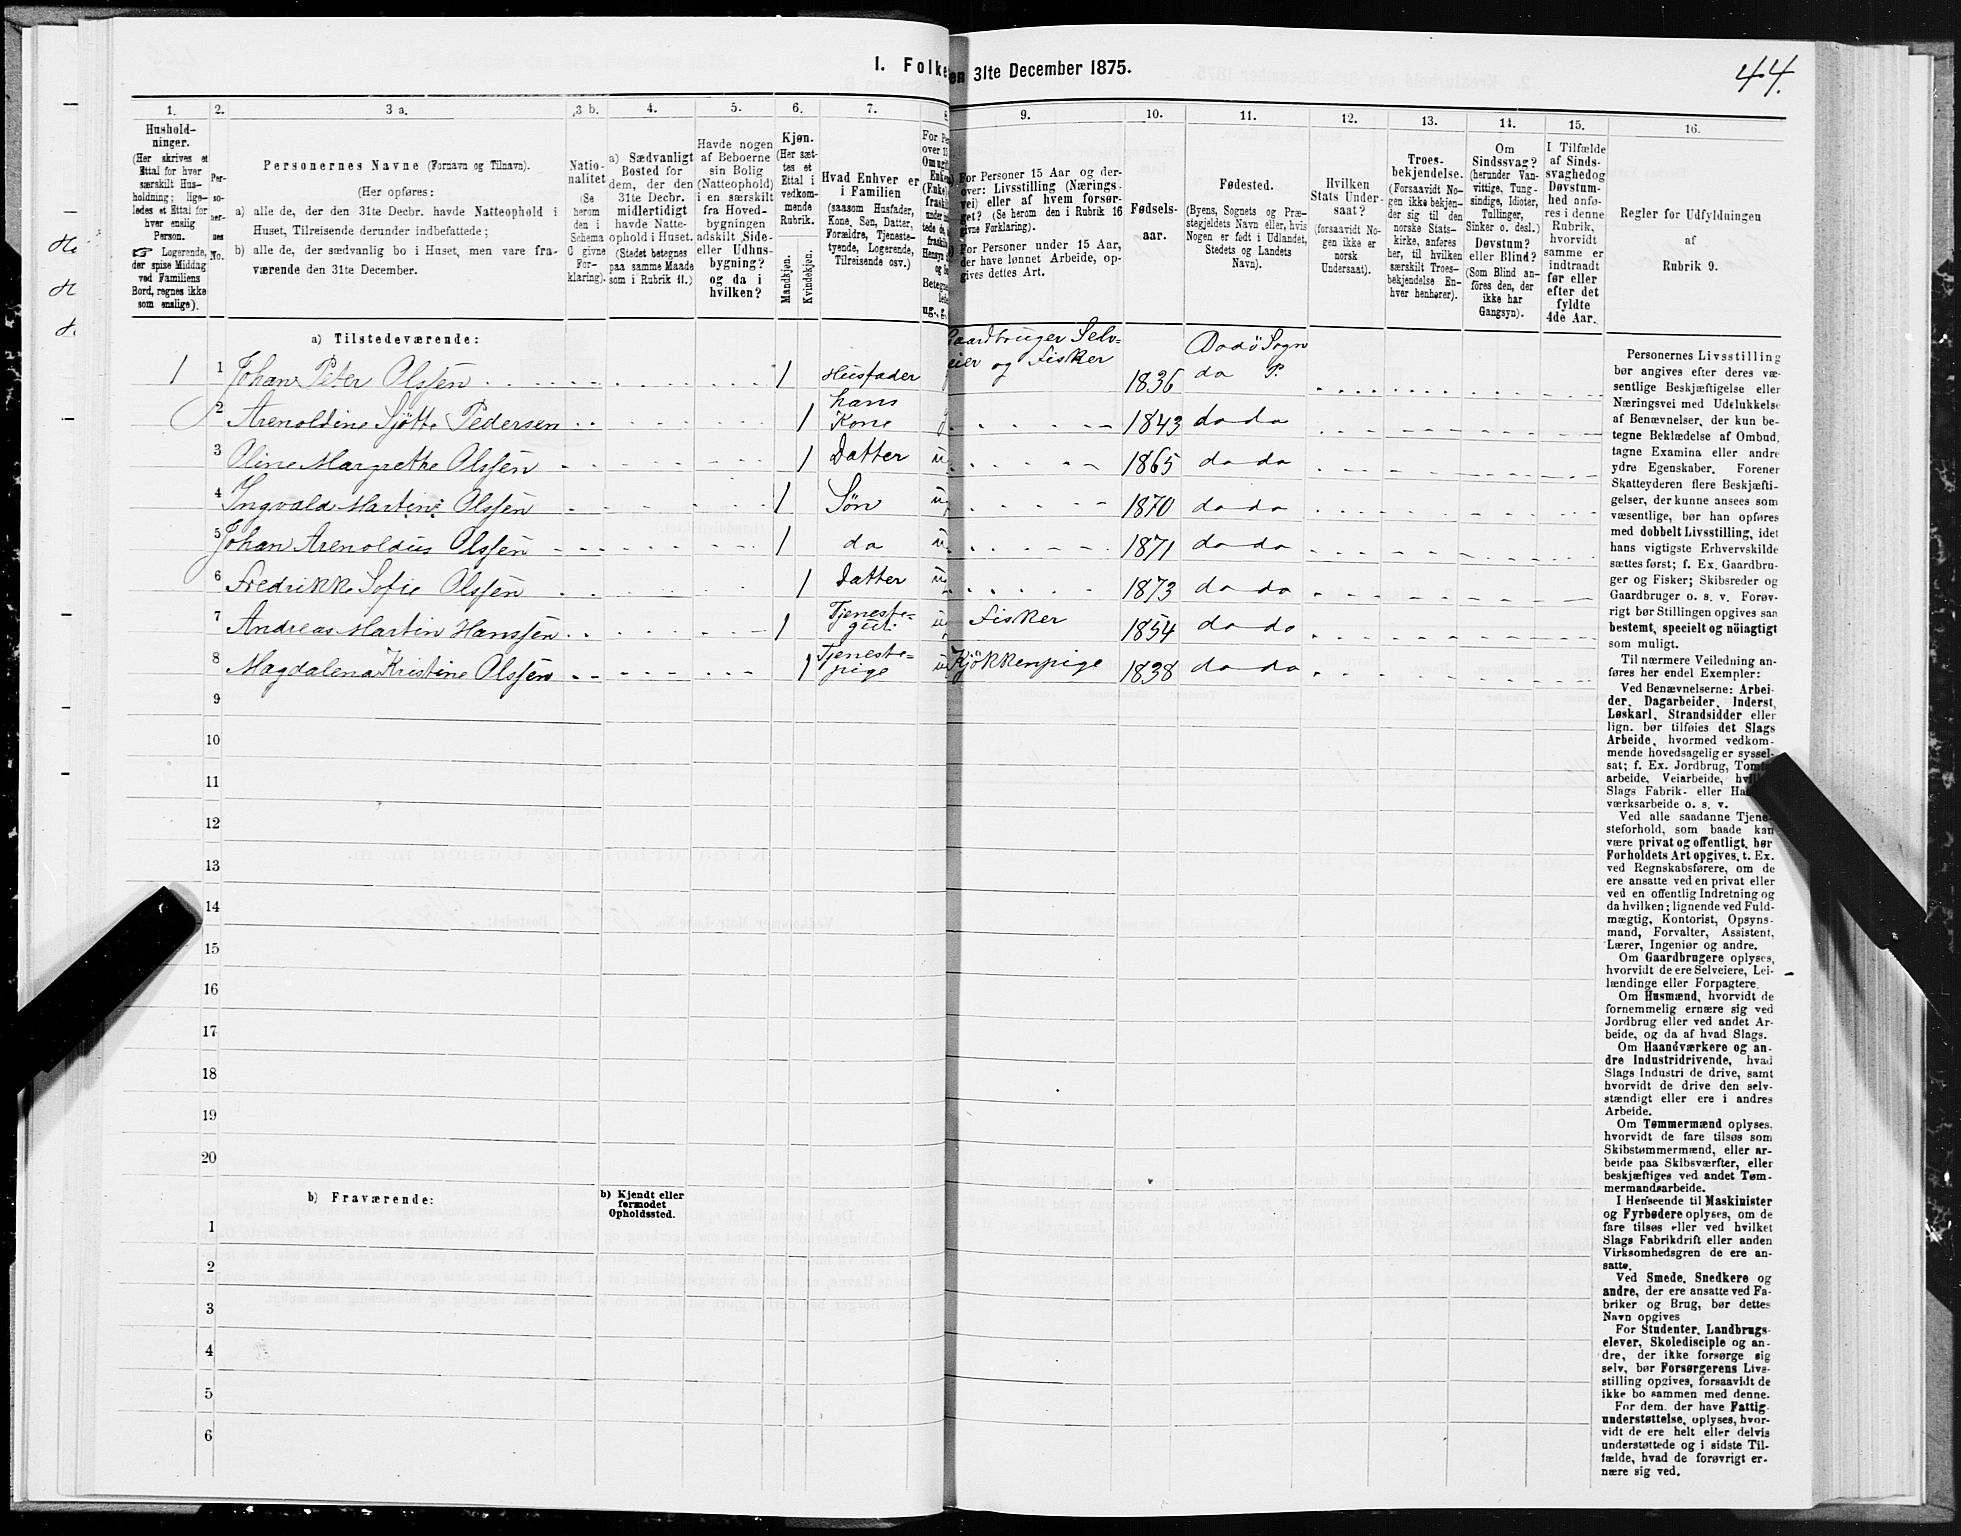 1. Folke
en 31te December 1875.
44.
1. 2. 3 a. 3 b. 4. 5. 6. 7. 8. 9. 10. 11. 12. 13. 14. 15. 16.
Hushold-
ninger.
(Her skrives et
Ettal for hver
særskilt Hus-
holdning; lige-
ledes et Ettal for
hver enslig
Person.
☞ Logerende,
der spise Middag
ved Familiens
Bord, regnes ikke
som enslige).
Per-
so-
ner-
nes
No.
Personernes Navne (Fornavn og Tilnavn).
(Her opføres:
a) alle de, der den 31te Decbr. havde Natteophold i
Huset, Tilreisende derunder indbefattede;
b) alle de, der sædvanlig bo i Huset, men vare fra-
værende den 31te December.
Natio-
nalitet
(Se
herom
den i
Schema
O givne
For-
klaring).
a) Sædvanligt
Bosted for
dem, der den
31te Decbr.
midlertidigt
havde Natte-
ophold i Huset.
(Stedet betegnes
paa samme Maade
som i Rubrik 11.)
Havde nogen
af Beboerne
sin Bolig
(Natteophold)
i en særskilt
fra Hoved-
bygningen
adskilt Side-
eller Udhus-
bygning?
og da i
hvilken?
Kjøn.
(Her sæt-
tes et
Ettal i
vedkom-
mende
Rubrik.
Mandkjøn.
Kvindekjøn.
Hvad Enhver er
i Familien
(saasom Husfader,
Kone, Søn, Datter,
Forældre, Tjeneste-
tyende, Logerende,
Tilreisende osv.)
For Pe
over 15
Om ugift
Enke
(Enke)
fraskilt
ug., g.,
For Personer 15 Aar og der-
over: Livsstilling (Nærings-
vei) eller af hvem forsør-
get? (Se herom den i Rubrik 16
givne Forklaring).
For Personer under 15 Aar,
der have lønnet Arbeide, op-
gives dettes Art.
Fødsels-
aar.
Fødested.
(Byens, Sognets og Præ-
stegjeldets Navn eller, hvis
Nogen er født i Udlandet,
Stedets og Landets
Navn).
Hvilken
Stats Under-
saat?
(forsaavidt No-
gen ikke er
norsk
Undersaat).
Troes-
bekjendelse.
(Forsaavidt No-
gen ikke bekjen-
der sig til den
norske Stats-
kirke, anføres
her, til hvilken
særskilt Troes-
bekjendelse En-
hver henhører).
Om
Sindssvag?
(herunder Van-
vittige, Tung-
sindige, Idioter,
Tullinger,
Sinker o. desl.)
Døvstum?
eller Blind?
(Som Blind an-
føres den, der
ikke har
Gangsyn).
I Tilfælde
af Sinds-
svaghedog
Døvstum-
hed anfø-
res i denne
Rubrik,
hvorvidt
samme er
indtraadt
før eller
efter det
fyldte
4de Aar.
Regler for Udfyldningen
af
Rubrik 9.
a) Tilstedeværende:
1 1 Johan Peter Olssen 1 Husfader Gaardbruger Selv-
eier og Fisker 1836 Bodö Sogn
do P.
2 Arenoldine Sjötte Pedersen 1 hans
Kone g 1843 do do
3 Oline Margrethe Olssen 1 Datter u 1865 do do
4 Ingvald Martin Olssen 1 Søn u 1870 do do
5 Johan Arenoldus Olssen 1 do u 1871 do do
6 Fredrikke Sofie Olssen 1 Datter u 1873 do do
7 Andreas Martin Hanssen 1 Tjeneste-
gut u Fisker 1854 do do
8 Magdalena Kristine Olssen 1 Tjeneste-
pige u Kjøkkenpige 1838 do do
9
10
11
12
13
14
15
16
17
18
19
20
b) Fraværende:
b) Kjendt eller
formodet
Opholdssted.
1
2
3
4
5
6
Personernes Livsstilling
bør angives efter deres væ-
sentlige Beskjæftigelse eller
Næringsvei med Udelukkelse
af Benævnelser, der kun be-
tegne Beklædelse af Ombud,
tagne Examina eller andre
ydre Egenskaber. Forener
Skatteyderen flere Beskjæfti-
gelser, der kunne ansees som
væsentlige, bør han opføres
med dobbelt Livsstilling, idet
hans vigtigste Erhvervskilde
sættes først; f. Ex. Gaardbru-
ger og Fisker; Skibsreder og
Gaardbruger o. s. v. Forøv-
rigt bør Stillingen opgives saa
bestemt, specielt og nöiagtigt
som muligt.
Til nærmere Veiledning an-
føres her endel Exempler:
Ved Benævnelserne: Arbei-
der, Dagarbeider, Inderst,
Løskarl, Strandsidder eller
lign. bør tilføies det Slags
Arbeide, hvormed vedkom-
mende hovedsagelig er syssel-
sat; f. Ex. Jordbrug, Tomte-
arbeide, Veiarbeide, hvilket
Slags Fabrik- eller Haand-
værksarbeide o. s. v.
Ved alle saadanne Tjene-
steforhold, som baade kan
være privat og offentligt, bør
Forholdets Art opgives, t. Ex.
ved Regnskabsførere, om de
ere ansatte ved en privat eller
ved en offentlig Indretning og
da hvilken; lignende ved Fuld-
mægtig, Kontorist, Opsyns-
mand, Forvalter, Assistent,
Lærer, Ingeniør og andre.
Om Gaardbrugere oplyses,
hvorvidt de ere Selveiere, Lei-
lændinge eller Forpagtere.
Om Husmænd, hvorvidt de
fornemmelig ernære sig ved
Jordbrug eller ved andet Ar-
beide, og da af hvad Slags.
Om Haandværkere og an-
dre Industridrivende, hvad
Slags Industri de drive, samt
hvorvidt de drive den selv-
stændigt eller ere i andres
Arbeide.
Om Tømmermænd oplyses,
hvorvidt de fare tilsøs som
Skibstømmermænd, eller ar-
beide paa Skibsværfter, eller
beskjæftiges ved andet Tøm-
mermandsarbeide.
I Henseende til Maskinister
og Fyrbødere oplyses, om de
fare tilsøs eller ved hvilket
Slags Fabrikdrift eller anden
Virksomhedsgren de ere an-
satte.
Ved Smede, Snedkere og
andre, der ere ansatte ved Fa-
briker og Brug, bør dettes
Navn opgives
For Studenter, Landbrugs-
elever, Skoledisciple og an-
dre, der ikke forsørge sig
selv, bør Forsørgerens Livs-
stilling opgives, forsaavidt de
ikke bo sammen med denne.
For dem, der have Fattig-
understøttelse, oplyses, hvor-
vidt de ere helt eller delvis
understøttede og i sidste Til-
fælde, hvad de forøvrigt er-
nære sig ved.